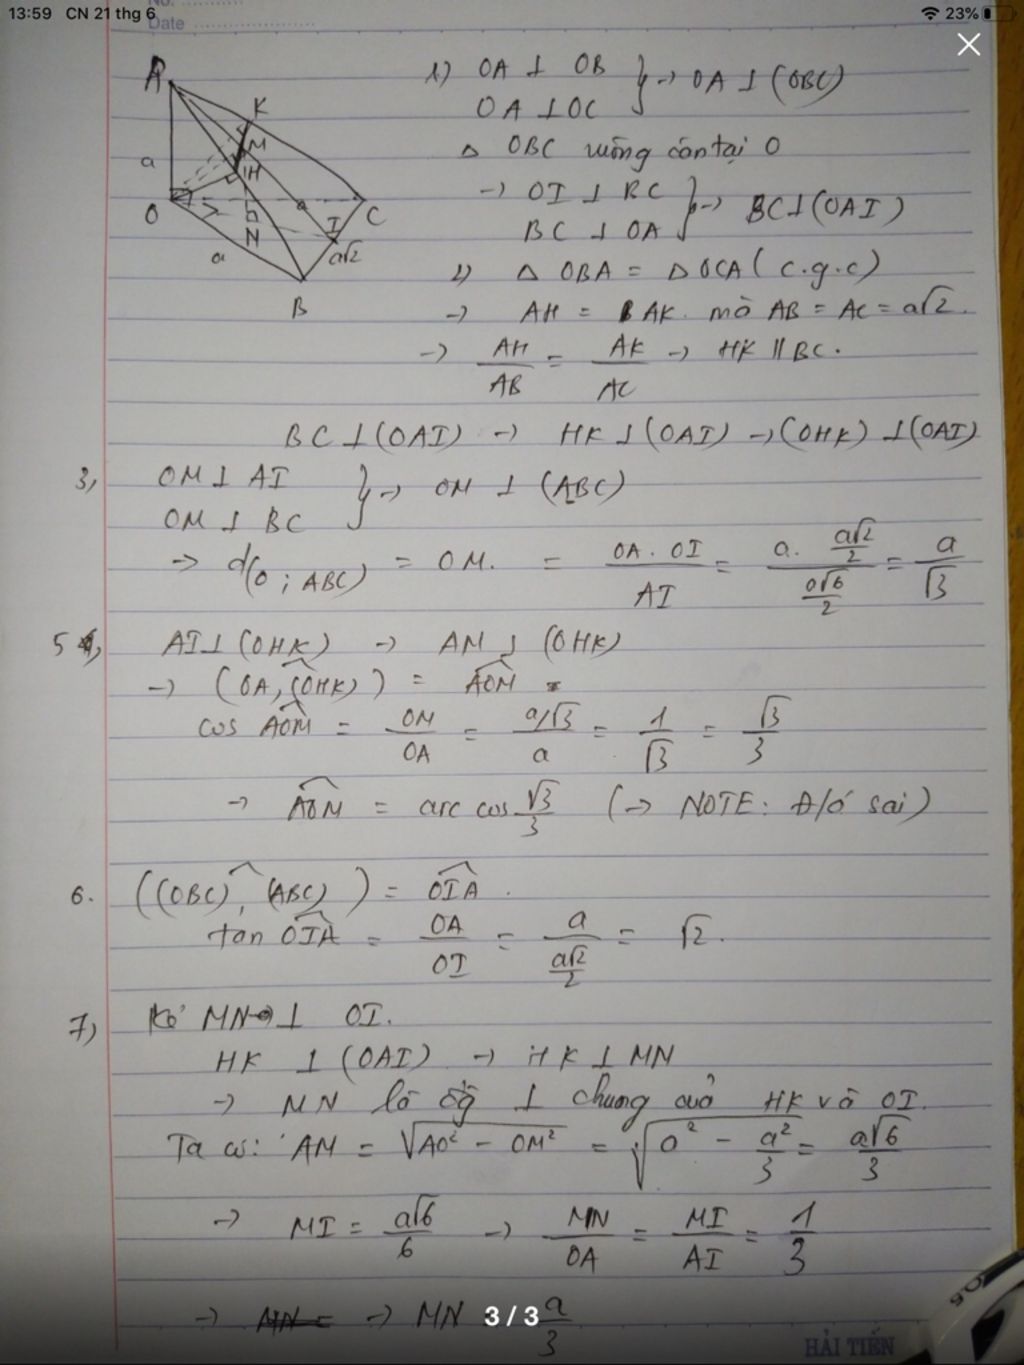 13:59 CN 21 thg 6
23%
No.
Date
A
K
M
H
a
O
N
I
C
a
a√2
B
1) OA ⊥ OB
OA ⊥ OC } → OA ⊥ (OBC)
Δ OBC vuông cân tại O
→ OI ⊥ BC
BC ⊥ OA } → BC ⊥ (OAI)
2) Δ OBA = Δ OCA (c.g.c)
→ AH = AK. mà AB = AC = a√2.
→ AH/AB = AK/AC → HK // BC.
BC ⊥ (OAI) → HK ⊥ (OAI) → (OHK) ⊥ (OAI)
3, OM ⊥ AI
OM ⊥ BC } → OM ⊥ (ABC)
→ d(O; ABC) = OM. = OA.OI/AI = a.(a√2/2)/(a√6/2) = a/√3
5, AI ⊥ (OHK) → AM ⊥ (OHK)
→ (OA, (OHK)) = AOM =
cos AOM = OM/OA = (a/√3)/a = 1/√3 = √3/3
→ AOM = arc cos √3/3 (→ NOTE: Đ/ó sai)
6. ((OBC), (ABC)) = OIA.
tan OIA = OA/OI = a/(a√2/2) = √2.
7) Kẻ MN ⊥ OI.
HK ⊥ (OAI) → HK ⊥ MN
→ MN là đg ⊥ chung của HK và OI.
Ta có: AM = √(AO² - OM²) = √(a² - a²/3) = a√6/3
→ MI = a√6/6 → MN/OA = MI/AI = 1/3
→ MN = → MN a/3
3 / 3
HẢI TIẾN